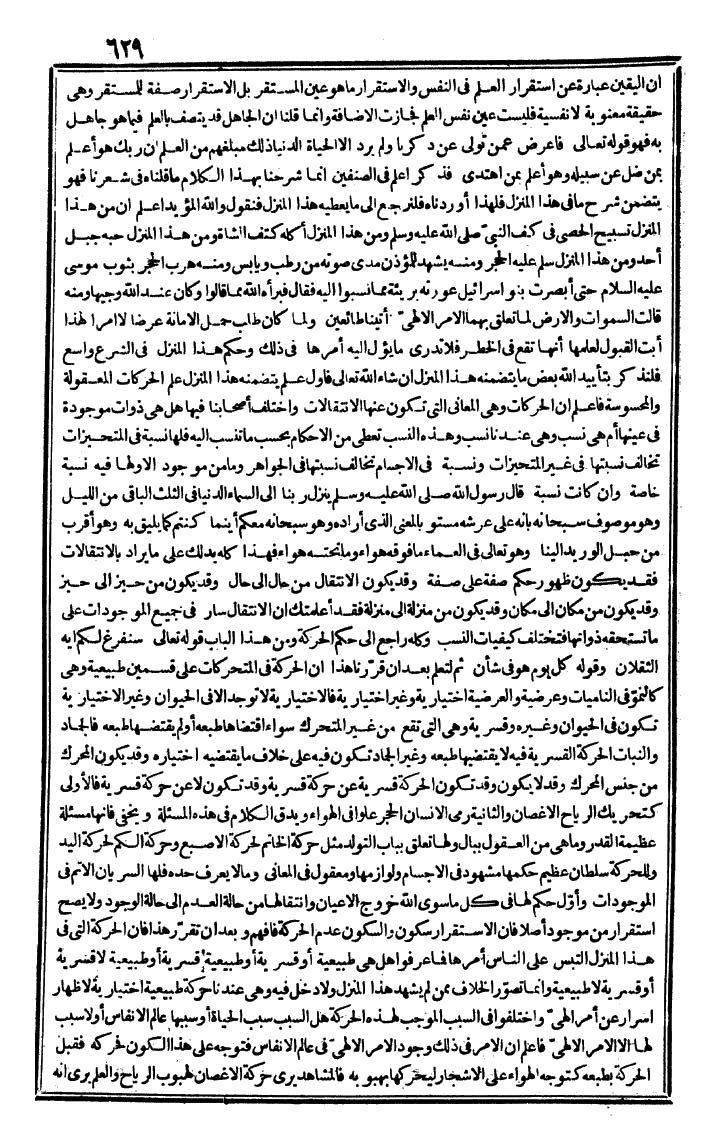 ٦٢٩
ان اليقين عبارة عن استقرار العلم فى النفس والاستقرار ماهو عين المستقر بل الاستقرار صفة للمستقر وهى
حقيقة معنوية لا نفسية فليست عين نفس العلم فجازت الاضافة وانما قلنا ان الجاهل قد يتصف بالعلم فيما هو جاهل
به فهو قوله تعالى فاعرض عمن تولى عن ذكرنا ولم يرد الا الحياة الدنيا ذلك مبلغهم من العلم ان ربك هو أعلم
بمن ضل عن سبيله وهو أعلم بمن اهتدى فذكر اعلم فى الصنفين انما شرحنا بهذا الكلام ما قلناه فى شعرنا فهو
يتضمن شرح ما فى هذا المنزل فلهذا أوردناه فلنرجع الى ما يعطيه هذا المنزل فنقول والله المؤيد اعلم ان من هذا
المنزل تسبيح الحصى فى كف النبى صلى الله عليه وسلم ومن هذا المنزل أكله كتف الشاة ومن هذا المنزل حبه جبل
أحد ومن هذا المنزل سلم عليه الحجر ومنه يشهد للمؤذن مدى صوته من رطب ويابس ومنه هرب الحجر بثوب موسى
عليه السلام حتى أبصرت بنو اسرائيل عورته بريئة مما نسبوا اليه فقال فبرأه الله مما قالوا وكان عند الله وجيها ومنه
قالت السموات والارض لما تعلق بهما الامر الالهىّ أتينا طائعين ولما كان طلب حمل الامانة عرضا لا امرا لهذا
أبت القبول لعلمها أنها تقع فى الخطر فلا تدرى ما يؤل اليه أمرها فى ذلك وحكم هذا المنزل فى الشرع واسع
فلنذكر بتأييد الله بعض ما يتضمنه هذا المنزل ان شاء الله تعالى فاول علم يتضمنه هذا المنزل علم الحركات المعقولة
والمحسوسة فاعلم ان الحركات وهى المعانى التى تكون عنها الانتقالات واختلف أصحابنا فيها هل هى ذوات موجودة
فى عينها أم هى نسب وهى عندنا نسب وهذه النسب تعطى من الاحكام بحسب ما تنسب اليه فلها نسبة فى المتحيزات
تخالف نسبتها فى غير المتحيزات ونسبة فى الاجسام تخالف نسبتها فى الجواهر وما من موجود الا ولها فيه نسبة
خاصة وان كانت نسبة قال رسول الله صلى الله عليه وسلم ينزل ربنا الى السماء الدنيا فى الثلث الباقى من الليل
وهو موصوف سبحانه بانه على عرشه مستو بالمعنى الذى أراده وهو سبحانه معكم أينما كنتم كما يليق به وهو أقرب
من حبل الوريد الينا وهو تعالى فى العماء ما فوقه هواء وما تحته هواء فهذا كله يدلك على ما يراد بالانتقالات
فقد يكون ظهور حكم صفة على صفة وقد يكون الانتقال من حال الى حال وقد يكون من حيز الى حيز
وقد يكون من مكان الى مكان وقد يكون من منزلة الى منزلة فقد أعلمتك ان الانتقال سار فى جميع الموجودات على
ما تستحقه ذواتها فتختلف كيفيات النسب وكله راجع الى حكم الحركة ومن هذا الباب قوله تعالى سنفرغ لكم ايه
الثقلان وقوله كل يوم هو فى شأن ثم لتعلم بعد ان قرّرنا هذا ان الحركة فى المتحركات على قسمين طبيعية وهى
كالنموّ فى الناميات وعرضية والعرضية اختيارية وغير اختيارية فالاختيارية لا توجد الا فى الحيوان وغير الاختيارية
تكون فى الحيوان وغيره وقسرية وهى التى تقع من غير المتحرك سواء اقتضاها طبعه أو لم يقتضها طبعه فالجماد
والنبات الحركة القسرية فيه لا يقتضيها طبعه وغير الجماد تكون فيه على خلاف ما يقتضيه اختياره وقد يكون المحرك
من جنس المحرك وقد لا يكون وقد تكون الحركة قسرية عن حركة قسرية وقد تكون لا عن حركة قسرية فالأولى
كتحريك الرياح الاغصان والثانية رمى الانسان الحجر علوا فى الهواء ويدق الكلام فى هذه المسئلة ويخفى فانها مسئلة
عظيمة القدر وما هى من العقول ببال ولها تعلق بباب التولد مثل حركة الخاتم لحركة الاصبع وحركة الكم لحركة اليد
وللحركة سلطان عظيم حكمها مشهود فى الاجسام ولوازمها ومعقول فى المعانى وما لا يعرف حده فلها السريان الاتم فى
الموجودات وأوّل حكم لها فى كل ما سوى الله خروج الاعيان وانتقالها من حالة العدم الى حالة الوجود ولا يصح
استقرار من موجود أصلا فان الاستقرار سكون والسكون عدم الحركة فافهم وبعد ان تقرّر هذا فان الحركة التى فى
هذا المنزل التبس على الناس أمرها فما عرفوا هل هى طبيعية أو قسرية أو طبيعية قسرية أو طبيعية لا قسرية
أو قسرية لا طبيعية وانما تصوّر الخلاف ممن لم يشهد هذا المنزل ولا دخل فيه وهى عندنا حركة طبيعية اختيارية لاظهار
اسرار عن أمر الهىّ واختلفوا فى السبب الموجب لهذه الحركة هل السبب سبب الحياة أو سببها عالم الانفاس أو لا سبب
لها الا الامر الالهىّ فاعلم ان الامر فى ذلك وجود الامر الالهىّ فى عالم الانفاس فتوجه على هذا الكون فحركه فقبل
الحركة بطبعه كتوجه الهواء على الاشجار ليحركها بهبوبه فالمشاهد يرى حركة الاغصان لهبوب الرياح والعلم يرى انه